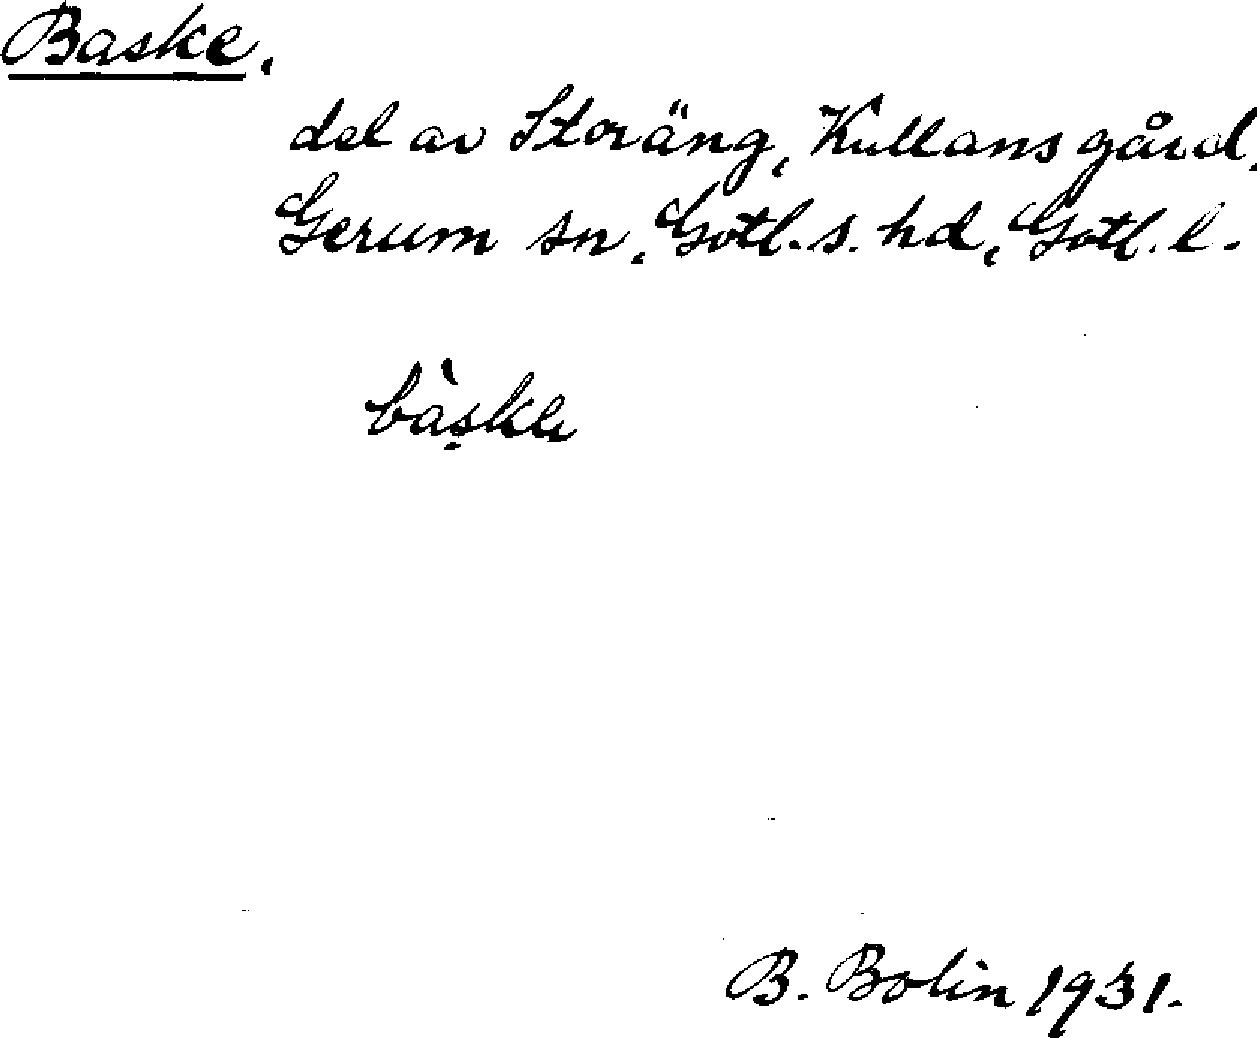 Baske.
del av Storäng, Kullans gård,
Gerum sn, Gotl. s. hd, Gotl. l.
bàskẹ
B. Bolin 1931.